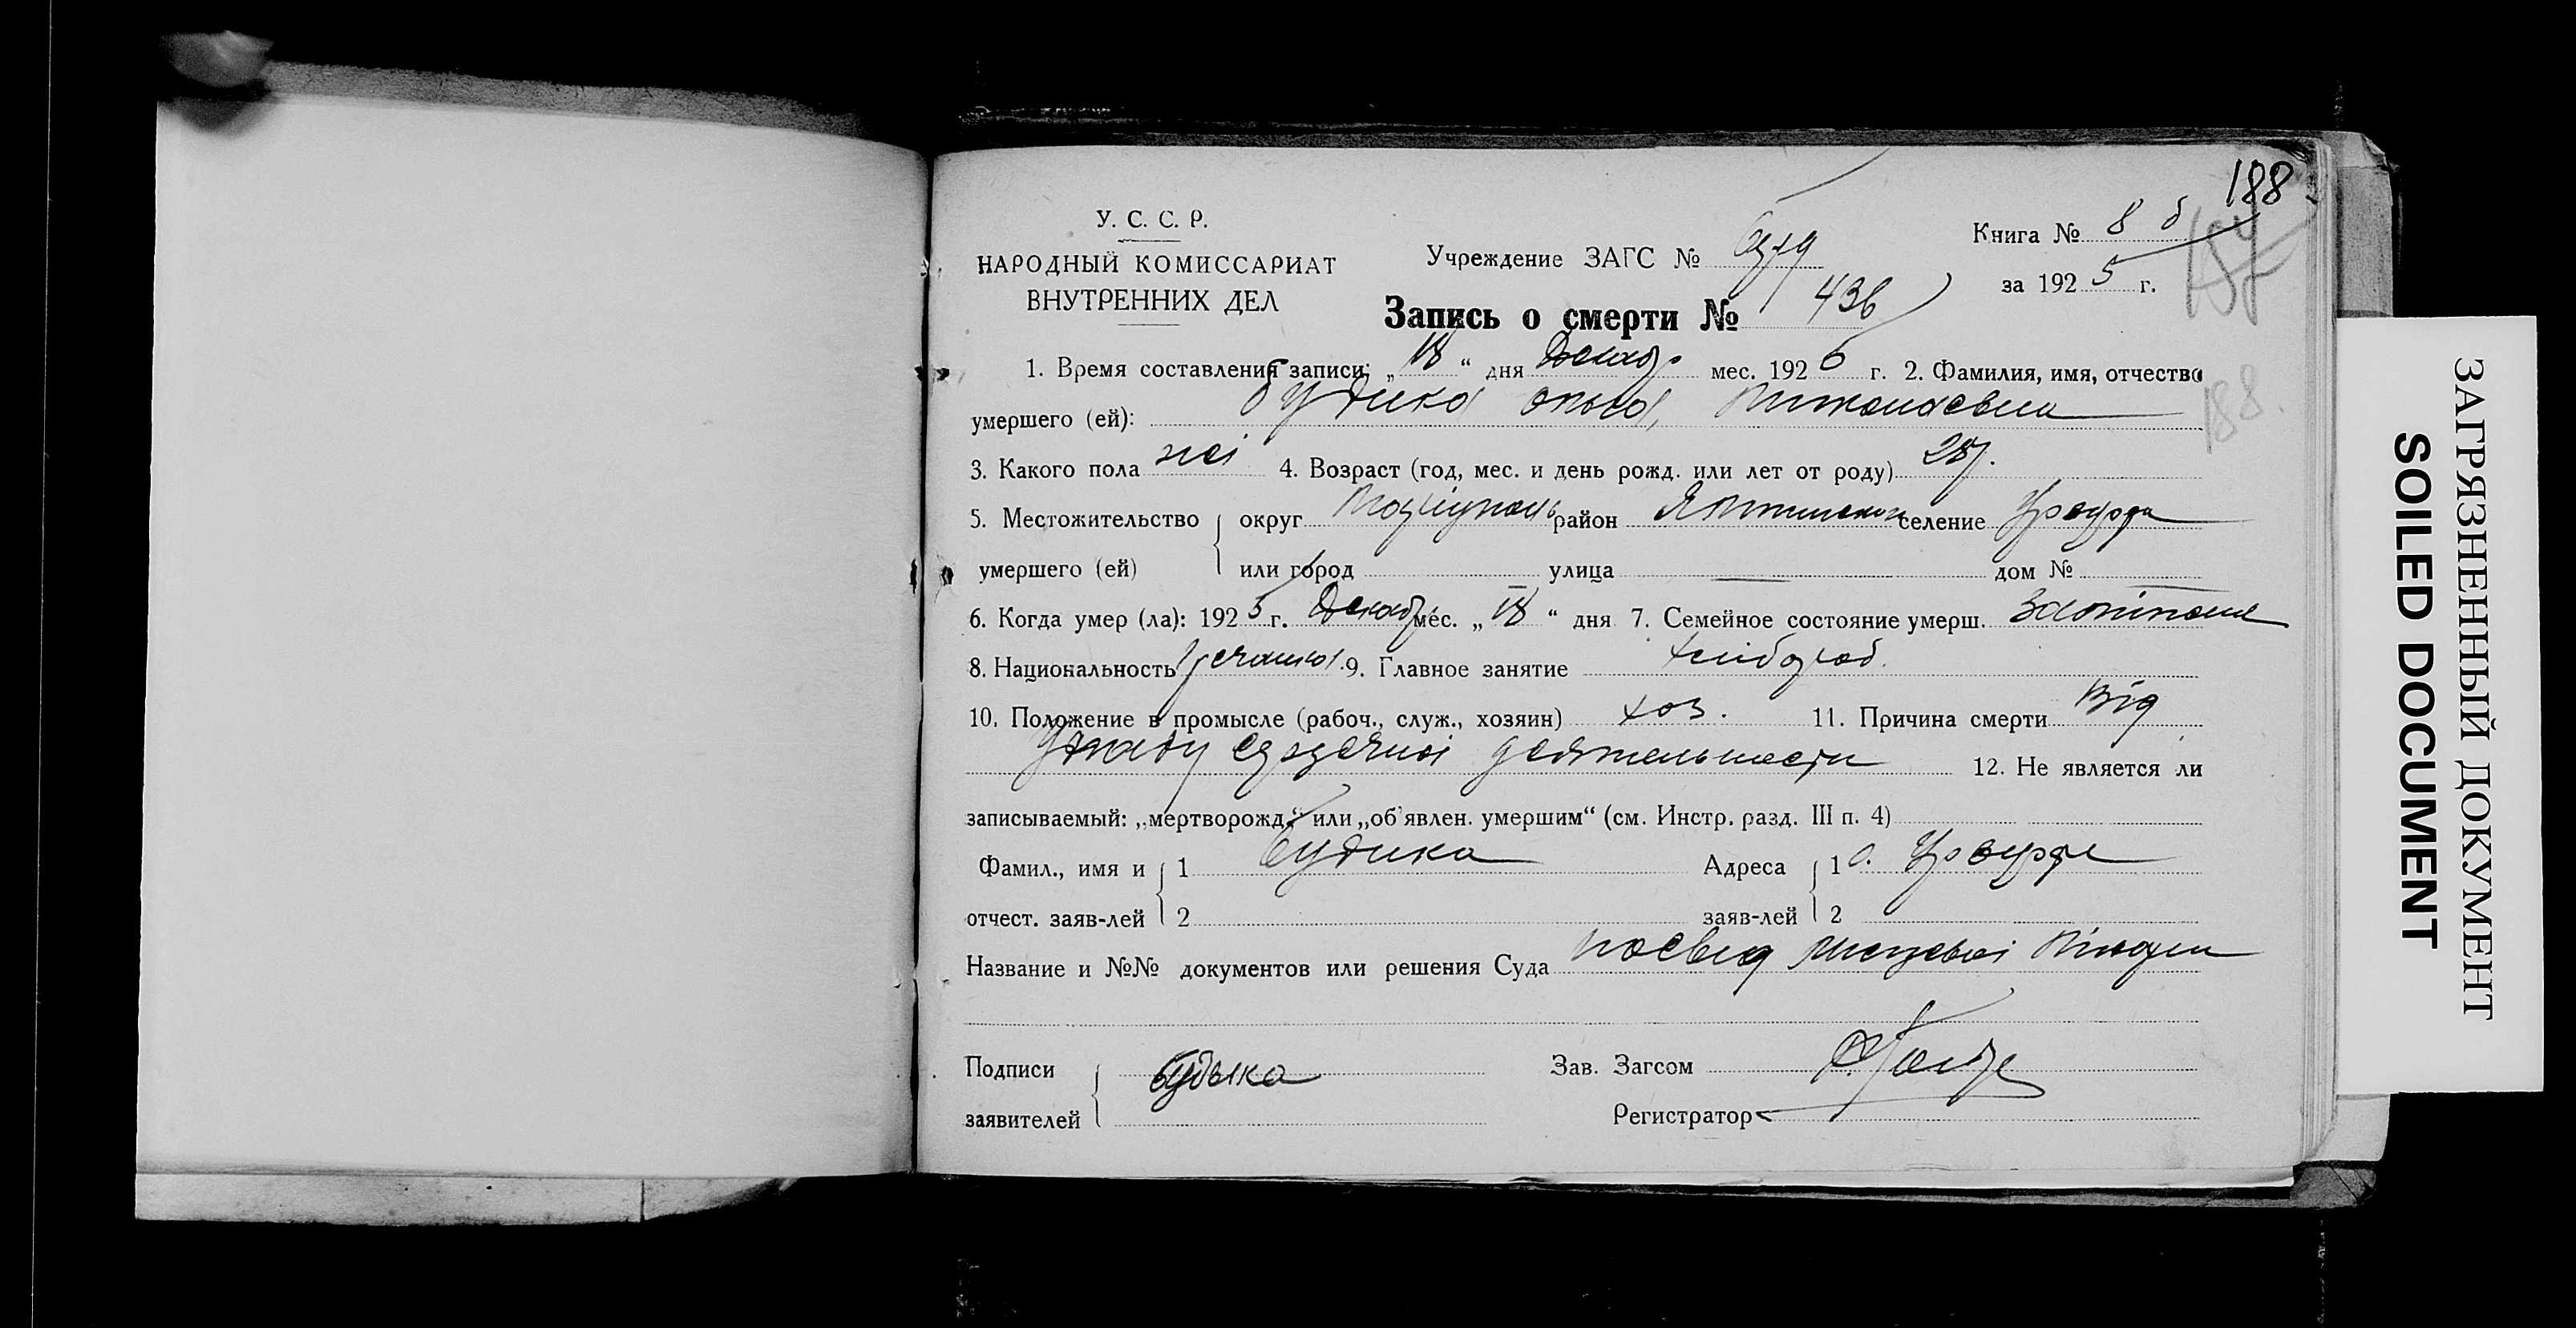 188
У. С. С. Р.
НАРОДНЫЙ КОМИССАРИАТ
ВНУТРЕННИХ ДЕЛ
Учреждение ЗАГС №
Книга № 8
187
за 1925 г.
Запись о смерти № 436
1. Время составления записи: „18“ дня Декабр мес. 192 г. 2. Фамилия, имя, отчество
188.
умершего (ей): Будика
3. Какого пола жі 4. Возраст (год, мес. и день рожд. или лет от роду) 28
5. Местожительство округ Маріуполь район Ялтинськ селение Урзуф
умершего (ей) или город улица дом №
6. Когда умер (ла): 1925 г. Декабр мес. „18“ дня 7. Семейное состояние умерш.
8. Национальность Гречанка 9. Главное занятие хлібороб.
10. Положение в промысле (рабоч., служ., хозяин) хоз. 11. Причина смерти Від
деятельности 12. Не является ли
записываемый: „мертворожд.“ или „об'явлен. умершим“ (см. Инстр. разд. III п. 4)
Фамил., имя и 1 Будика Адреса 1 с. Урзуф
отчест. заяв-лей 2 заяв-лей 2
Название и №№ документов или решения Суда посвід
Подписи Будыка Зав. Загсом
заявителей Регистратор
ЗАГРЯЗНЕННЫЙ ДОКУМЕНТ
SOILED DOCUMENT